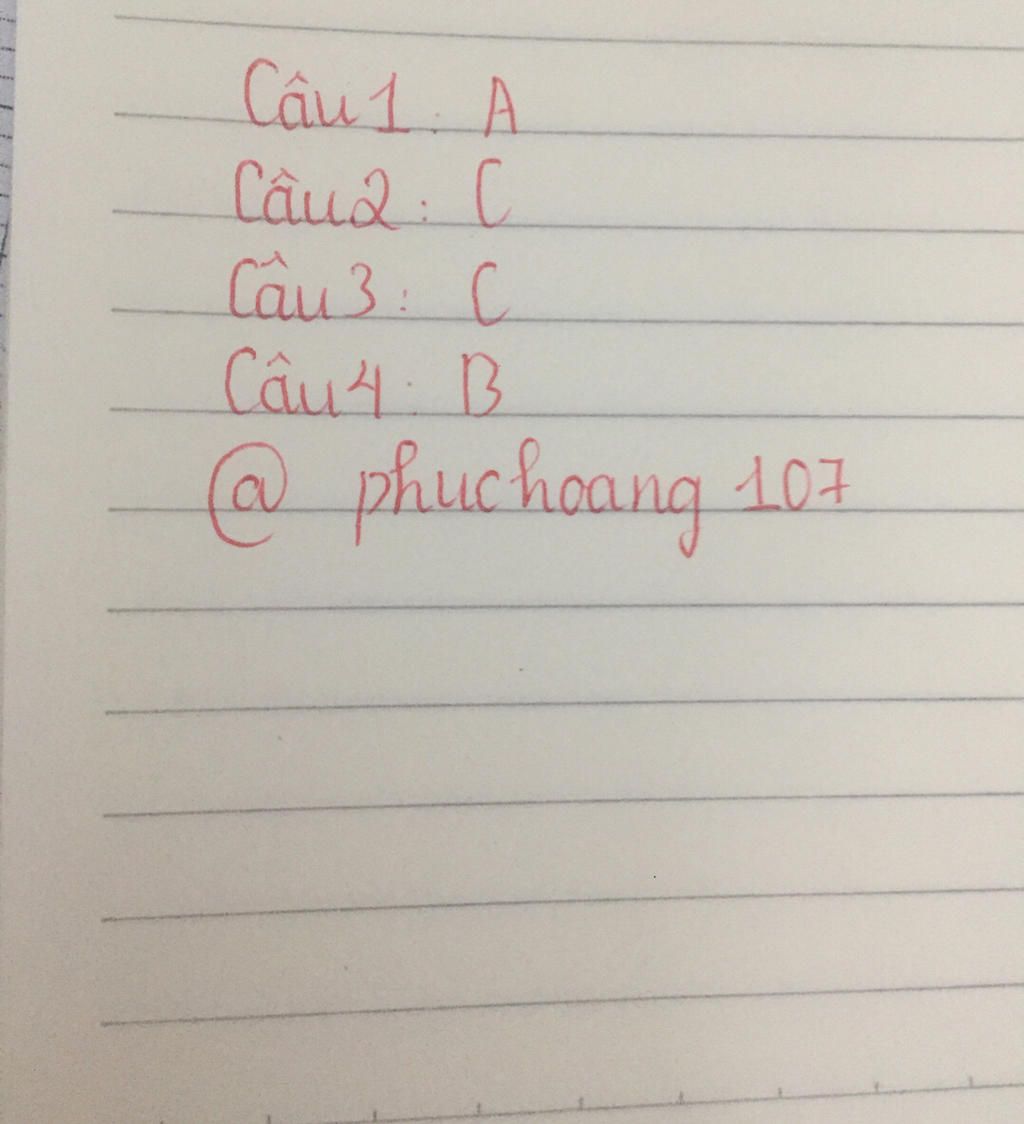 Câu 1: A
Câu 2: C
Câu 3: C
Câu 4: B
@ phuchoang 107